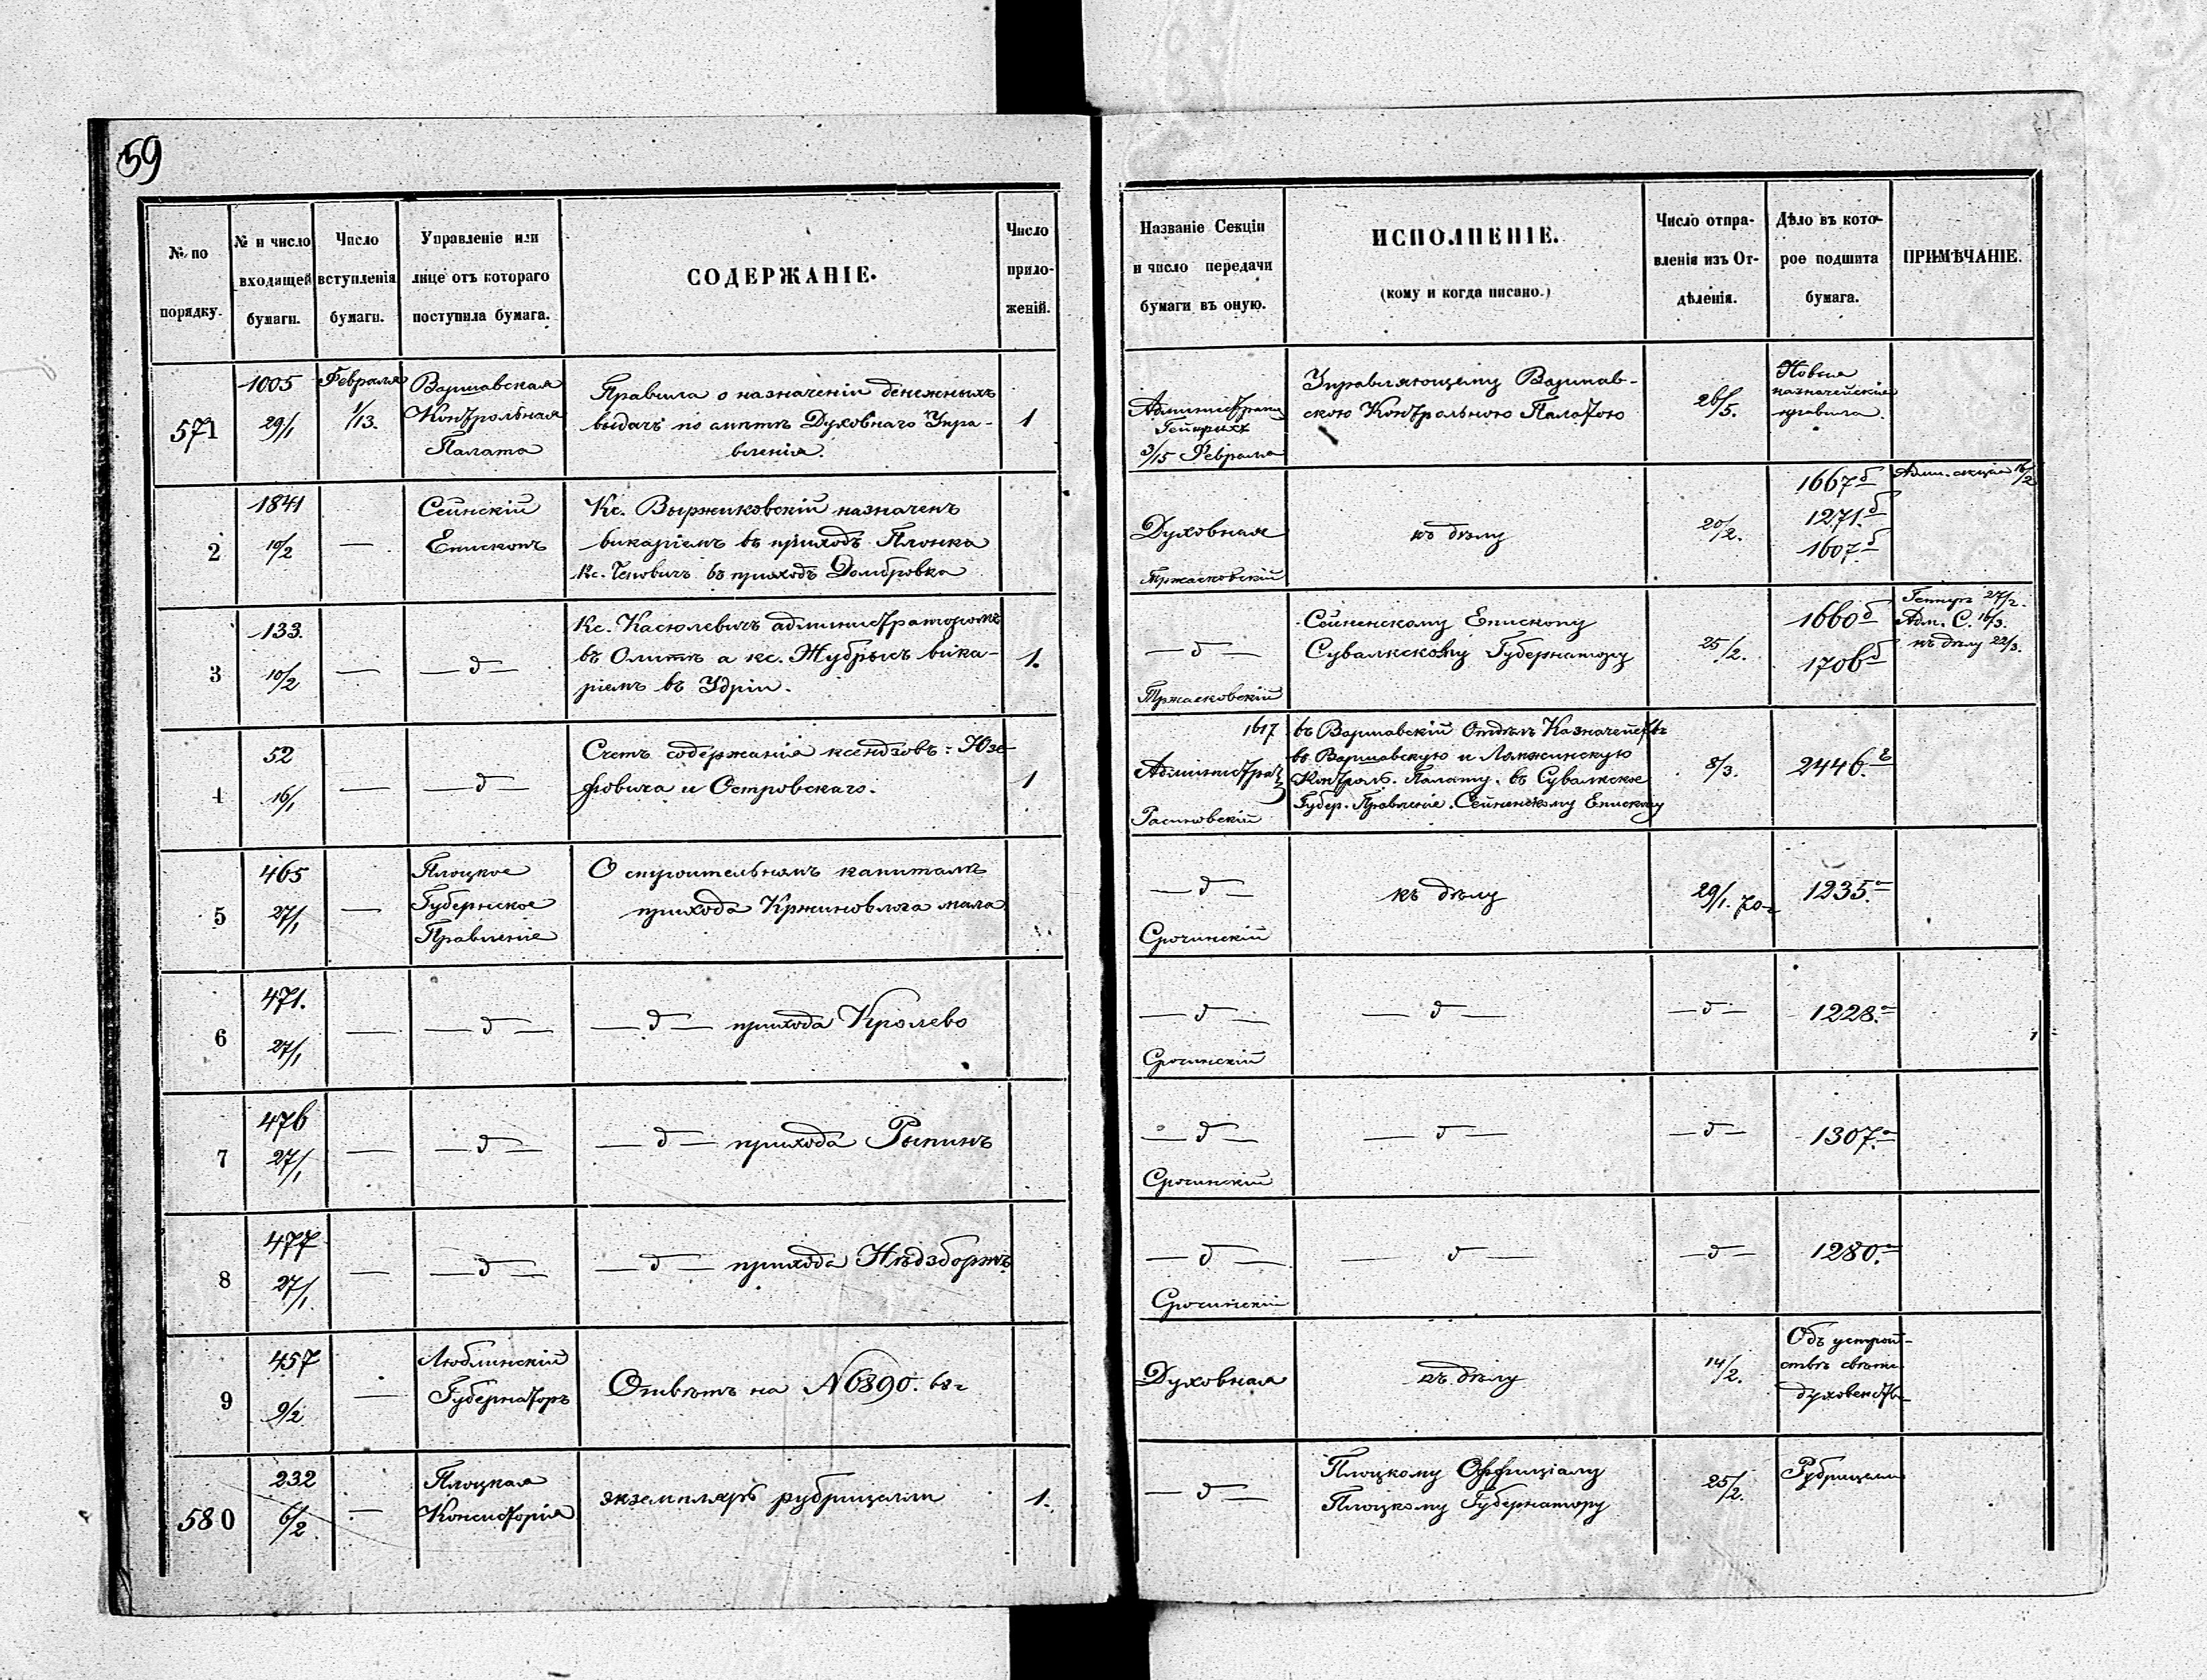 59
№ по порядку.
№ и число входящей бумаги.
Число вступленія бумаги.
Управленіе или лице отъ котораго поступила бумага.
СОДЕРЖАНІЕ.
Число приложеній.
Названіе Секціи и число передачи бумаги въ оную.
ИСПОЛНЕНІЕ.
(кому и когда писано.)
Число отправленія изъ Отдѣленія.
Дѣло въ которое подшита бумага.
ПРИМѢЧАНІЕ.
571
1005
29/1
Февраля
1/13.
Варшавская
Контрольная
Палата
Правила о назначеніи денежныхъ
выдачъ по смѣтѣ Духовнаго Упра-
вленія.
1
3/15 Февраля
Управляющему Варшав-
скою Контрольною Палатою
26/5.
Новыя
казначейскіе
правила.
2
1841
10/2
—
Сейнскій
Епископъ
Кс. Выржиковскій назначенъ
викаріемъ въ приходъ Плонка
въ приходъ Домбровка
Духовная
Тржасковскій
къ дѣлу
20/2.
1667 б
1271. б
1607 б
Адм. секція 16/2
3
133.
10/2
—
— д —
Кс. Касюлевичъ администраторомъ
въ Олитѣ а кс. Жубрысъ вика-
ріемъ въ Удріи.
1.
— д —
Тржасковскій
Сейненскому Епископу
Сувалкскому Губернатору
25/2.
1660 б
1706 б
27/2.
Адм. С. 16/3.
къ дѣлу 22/3.
4
52
16/1
—
— д —
Счетъ содержанія ксендзовъ: Юзе-
фовича и Островскаго.
1
1617
въ Варшавскій Отдѣлъ Казначейства
въ Варшавскую и Ломжинскую
Контроль. Палату. въ Сувалкское
Губер. Правленіе. Сейненскому Епископу
8/3.
2446.
5
465
27/1
—
Плоцкое
Губернское
Правленіе
О строительномъ капиталѣ
прихода Кржиновлога мала
— д —
Срочинскій
къ дѣлу
29/1. 70 г
1235. а
6
471.
27/1
—
— д —
— д — прихода Кролево
— д —
Срочинскій
— д —
— д —
1228. а
7
476
27/1
—
— д —
— д — прихода Рыпинъ
— д —
Срочинскій
— д —
— д —
1307. а
8
477
27/1.
—
— д —
— д — прихода Нѣдзборжъ
— д —
Срочинскій
— д —
— д —
1280. а
9
457
9/2
—
Люблинскій
Губернаторъ
Отвѣтъ на N 6890. 68 г
Духовная
къ дѣлу
14/2.
Объ устрой-
ствѣ свѣтс.
духовенства
580
232
6/2
—
Плоцкая
Консисторія
экземпляръ рубрицелли
1.
— д —
Плоцкому Оффиціалу
Плоцкому Губернатору
25/2.
Рубрицелли